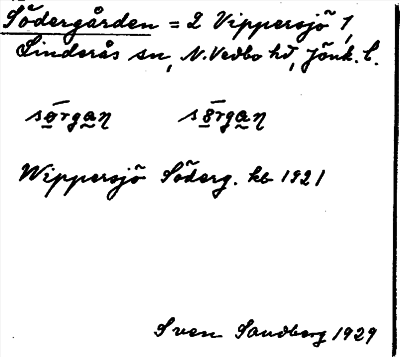 Södergården = 2 Vippersjö 1,
Linderås sn, N. Vedbo hd, Jönk. l.
Wippersjö Söderg. kb 1921
Sven Sandberg 1929